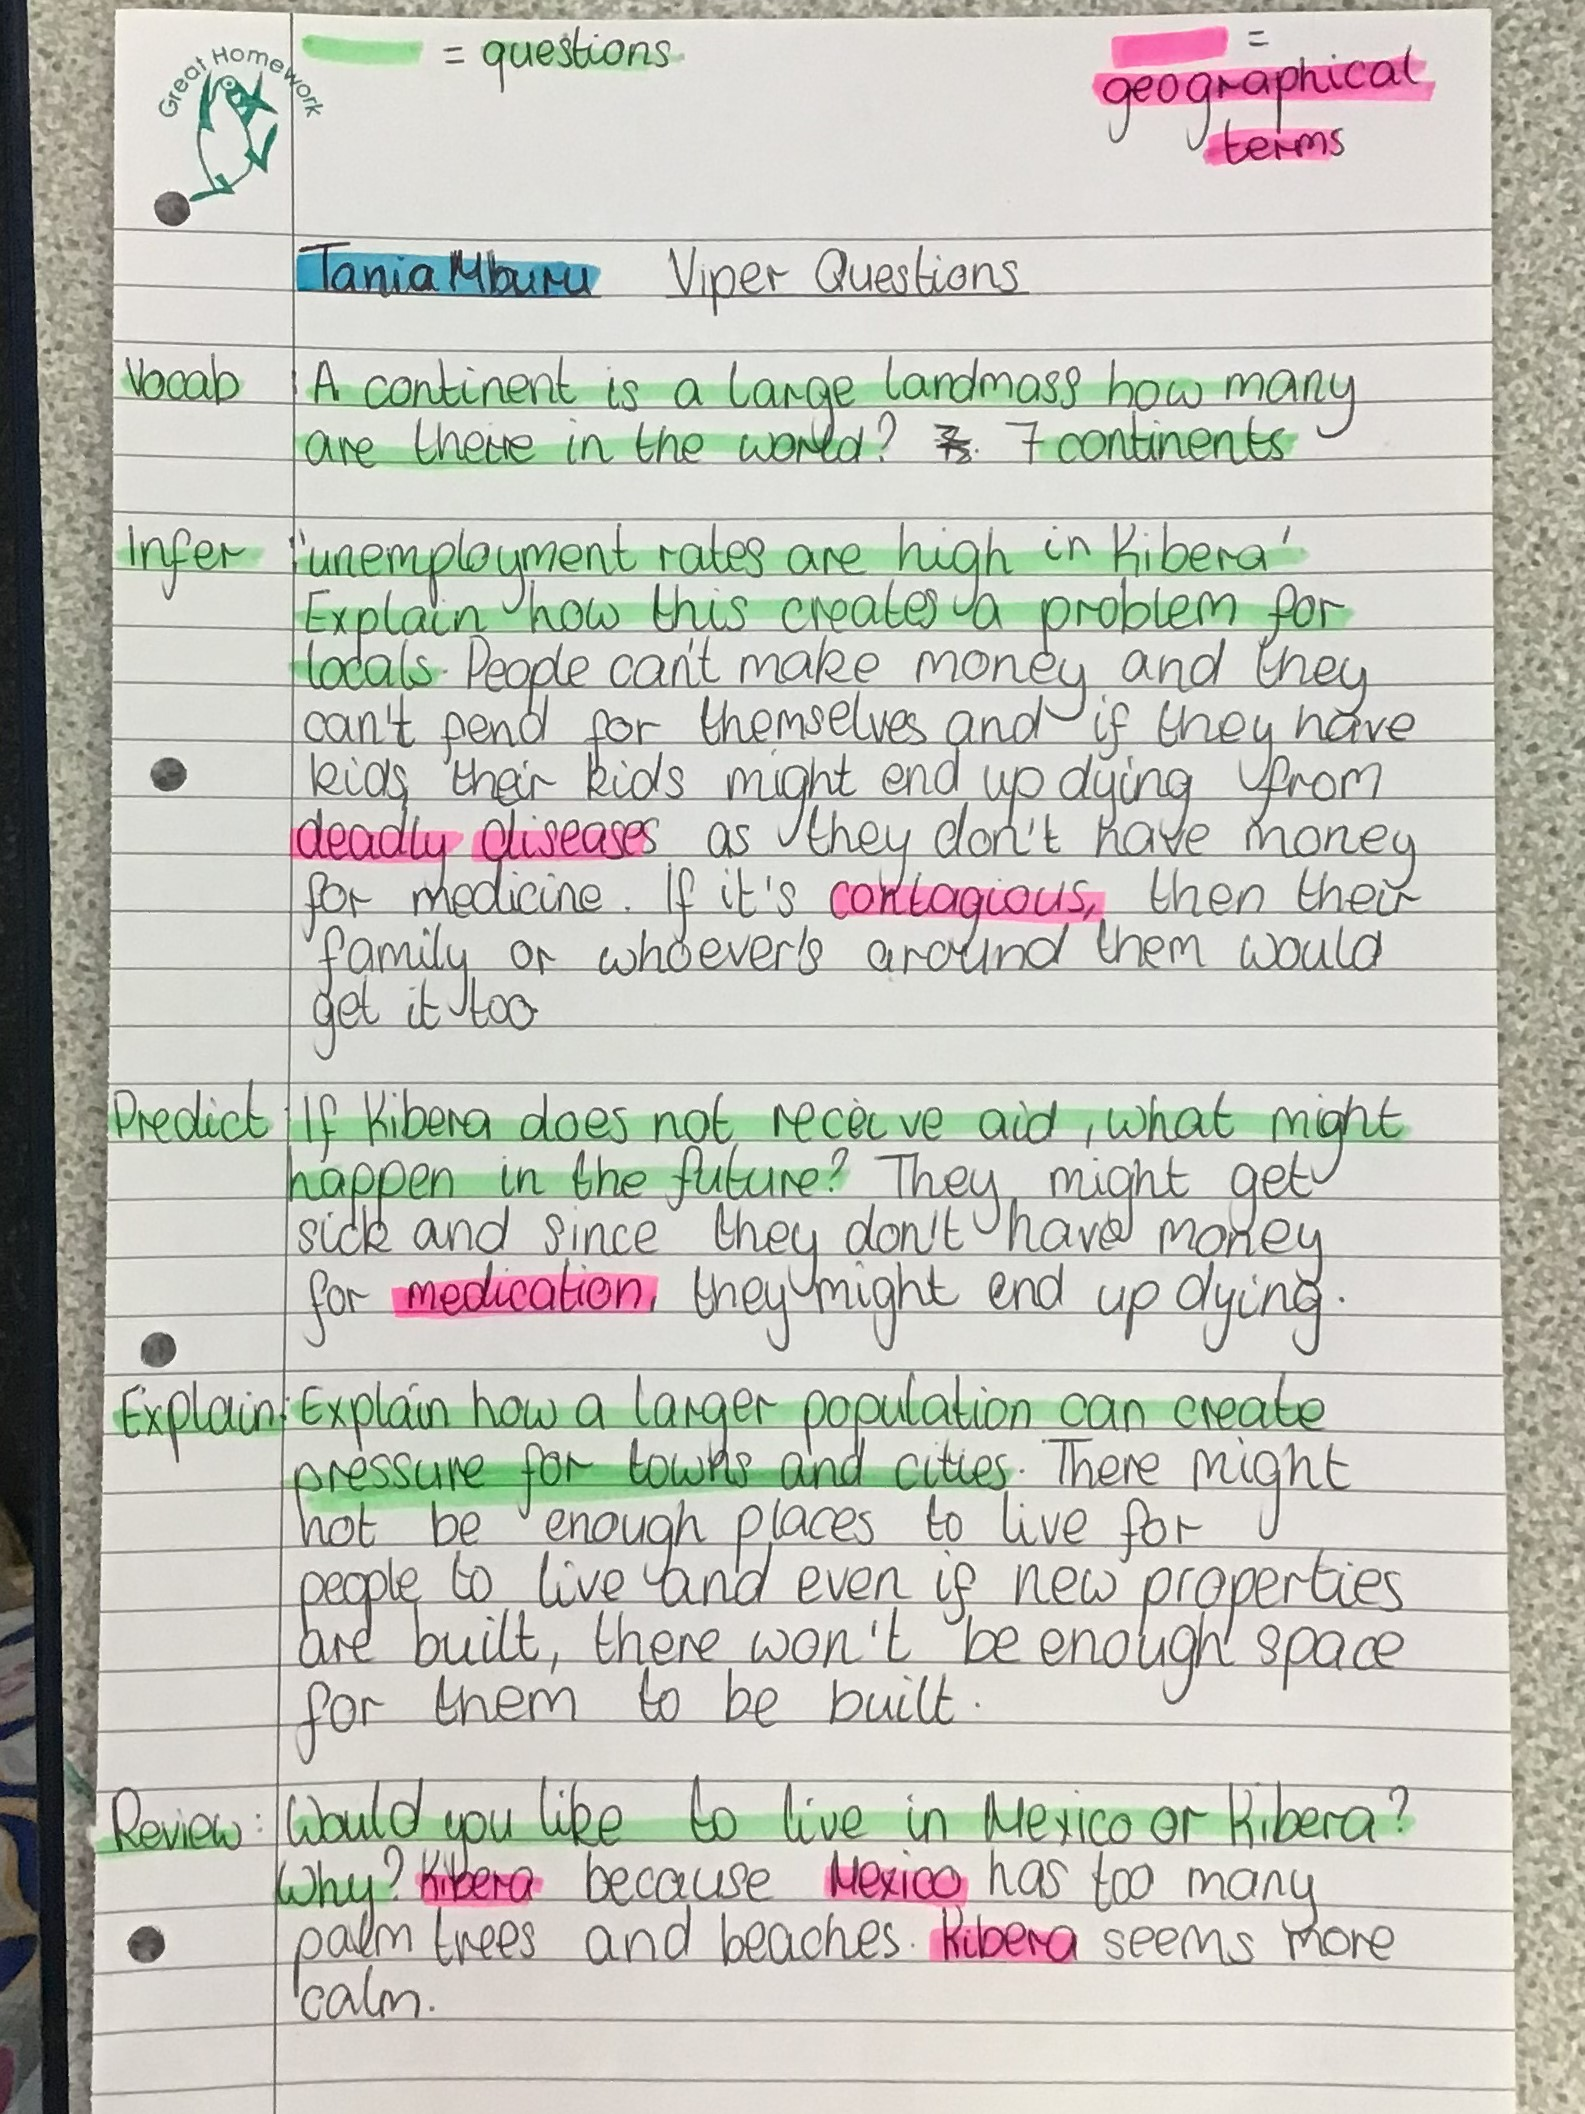 Great Homework
= questions
=
geographical
terms
Tania Mburu Viper Questions
Vocab A continent is a large landmass how many
are there in the world? 7 continents
Infer 'unemployment rates are high in Kibera'
Explain how this creates a problem for
locals. People can't make money and they
can't pend for themselves and if they have
kids, their kids might end up dying from
deadly diseases as they don't have money
for medicine. If it's contagious, then their
family or whoever's around them would
get it too
Predict If Kibera does not receive aid, what might
happen in the future? They might get
sick and since they don't have money
for medication, they might end up dying.
Explain: Explain how a larger population can create
pressure for towns and cities. There might
not be enough places to live for
people to live and even if new properties
are built, there won't be enough space
for them to be built.
Review: Would you like to live in Mexico or Kibera?
Why? Kibera because Mexico has too many
palm trees and beaches. Kibera seems more
calm.